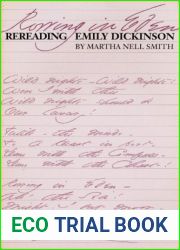 Rowing in Eden
REREADING EMILY DICKINSON
BY MARTHA NELL SMITH
Wild nights - Wild nights!
Were I with thee
Wild nights should be
Our luxury!
Futile - the winds -
To a Heart in port -
Done with the Compass -
Done with the Chart!
Rowing in Eden -
Ah - the Sea!
ECO TRIAL BOOK